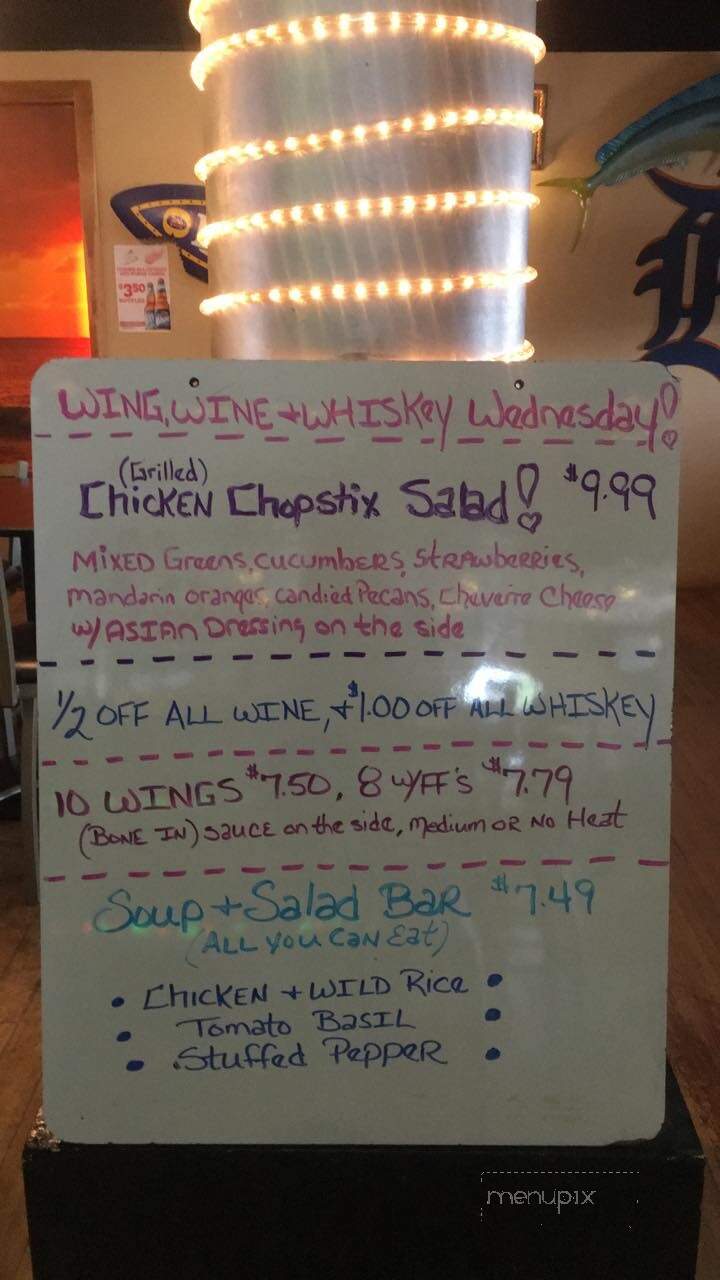 $3.50
WING, WINE + WHISKEY Wednesday!
(Grilled)
CHICKEN Chopstix Salad! $9.99
MIXED Greens, CUCUMBERS, STRAWberries,
mandarin oranges, candied Pecans, Cheverre Cheese
W/ ASIAN Dressing on the side
1/2 OFF ALL WINE, + $1.00 OFF ALL WHISKEY
10 WINGS $7.50, 8 W/FF'S $7.79
(BONE IN) SAUCE on the side, Medium OR NO Heat
Soup + Salad BAR $7.49
(ALL YOU CAN Eat)
• CHICKEN + WILD Rice •
• Tomato BASIL •
• Stuffed PEPPER •
menupix